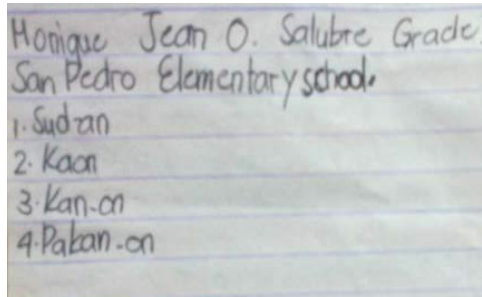 Monique Jean O. Salubre Grade
San Pedro Elementary school.
1. Sud-an
2. Kaon
3. Kan-on
4. Pakan-on